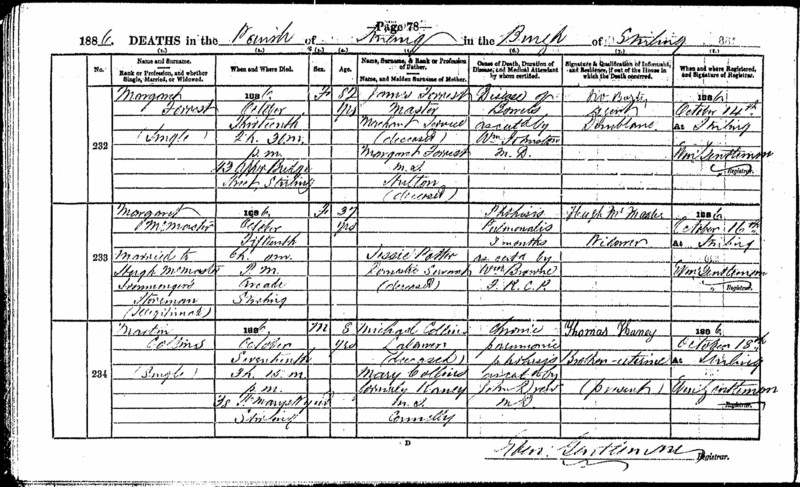 Page 78
1886. DEATHS in the Parish of Stirling in the Burgh of Stirling
(1.) (2.) (3.) (4.) (5.) (6.) (7.) (8.)
No.
Name and Surname.
Rank or Profession, and whether Single, Married, or Widowed.
When and Where Died.
Sex.
Age.
Name, Surname, & Rank or Profession of Father.
Name, and Maiden Surname of Mother.
Cause of Death, Duration of Disease, and Medical Attendant by whom certified.
Signature & Qualification of Informant, and Residence, if out of the House in which the Death occurred.
When and where Registered, and Signature of Registrar.
232
Margaret
Forrest
(Single)
1886,
October
Thirteenth
2h. 30m.
p.m.
Bridge
Street Stirling
F.
82
yrs
James Forrest
Master
Merchant
(deceased)
Margaret Forrest
m.s.
(deceased)
Disease of
Bowels
as cert by
Wm Johnston
M.D.
Dunblane
1886,
October 14th
At Stirling
Wm Gentleman
Registrar.
233
Margaret
McMaster
Married to
Hugh McMaster
Ironmonger's
Storeman
(Illegitimate)
1886,
October
Fifteenth
6h. 0m.
P.M.
Arcade
Stirling
F.
37
yrs
Jessie
Domestic Servant
(deceased)
Phthisis
Pulmonalis
3 months
as cert by
Wm Browne
F.R.C.P.
Hugh McMaster
Widower
1886,
October 16th
At Stirling
Wm Gentleman
Registrar.
234
Martin
Collins
(Single)
1886,
October
Seventeenth
3h. 15m.
p.m.
St. Mary's Wynd
Stirling
M.
8
yrs
Michael Collins
Labourer
(deceased)
Mary Collins
formerly Raney
m.s.
Connelly
Chronic
pneumonic
phthisis
as cert by
John
M.D.
Thomas Raney
Brother-uterine
(present)
1886,
October 18th
At Stirling
Wm Gentleman
Registrar.
D
Gentleman
Registrar.